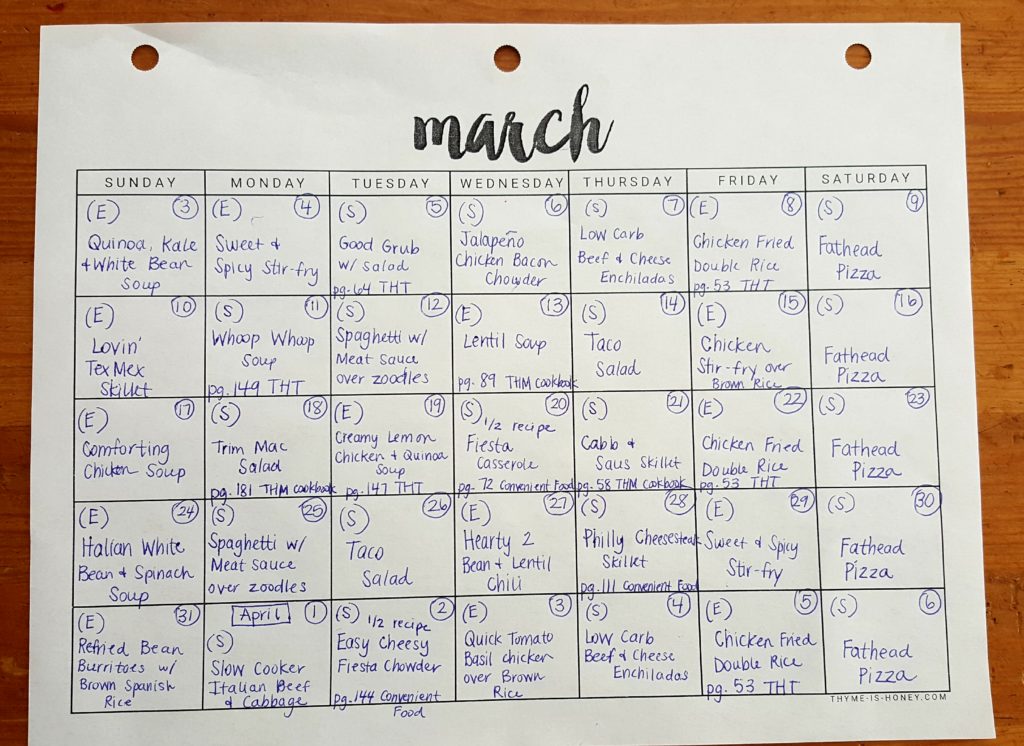 march
SUNDAY MONDAY TUESDAY WEDNESDAY THURSDAY FRIDAY SATURDAY
(E) 3
Quinoa, Kale
& White Bean
Soup
(E) 4
Sweet &
Spicy Stir-fry
(S) 5
Good Grub
w/ Salad
pg. 64 THT
(S) 6
Jalapeño
Chicken Bacon
Chowder
(S) 7
Low Carb
Beef & Cheese
Enchiladas
(E) 8
Chicken Fried
Double Rice
pg. 53 THT
(S) 9
Fathead
Pizza
(E) 10
Lovin'
Tex Mex
Skillet
(S) 11
Whoop Whoop
Soup
pg. 149 THT
(S) 12
Spaghetti w/
Meat Sauce
over zoodles
(E) 13
Lentil Soup
pg. 89 THM cookbook
(S) 14
Taco
Salad
(E) 15
Chicken
Stir-fry over
Brown Rice
(S) 16
Fathead
Pizza
(E) 17
Comforting
Chicken Soup
(S) 18
Trim Mac
Salad
pg. 181 THM cookbook
(E) 19
Creamy Lemon
Chicken & Quinoa
Soup
pg. 147 THT
(S) 20
1/2 recipe
Fiesta
Casserole
pg. 72 Convenient Food
(S) 21
Cabb &
Saus Skillet
pg. 58 THM cookbook
(E) 22
Chicken Fried
Double Rice
pg. 53 THT
(S) 23
Fathead
Pizza
(E) 24
Italian White
Bean & Spinach
Soup
(S) 25
Spaghetti w/
Meat Sauce
over zoodles
(S) 26
Taco
Salad
(E) 27
Hearty 2
Bean & Lentil
Chili
(S) 28
Philly Cheesesteak
Skillet
pg. 111 Convenient Food
(E) 29
Sweet & Spicy
Stir-fry
(S) 30
Fathead
Pizza
(E) 31
Refried Bean
Burritoes w/
Brown Spanish
Rice
April 1
(S)
Slow Cooker
Italian Beef
& Cabbage
(S) 2
1/2 recipe
Easy Cheesy
Fiesta Chowder
pg. 144 Convenient
Food
(E) 3
Quick Tomato
Basil chicken
over Brown
Rice
(S) 4
Low Carb
Beef & Cheese
Enchiladas
(E) 5
Chicken Fried
Double Rice
pg. 53 THT
(S) 6
Fathead
Pizza
THYME-IS-HONEY.COM